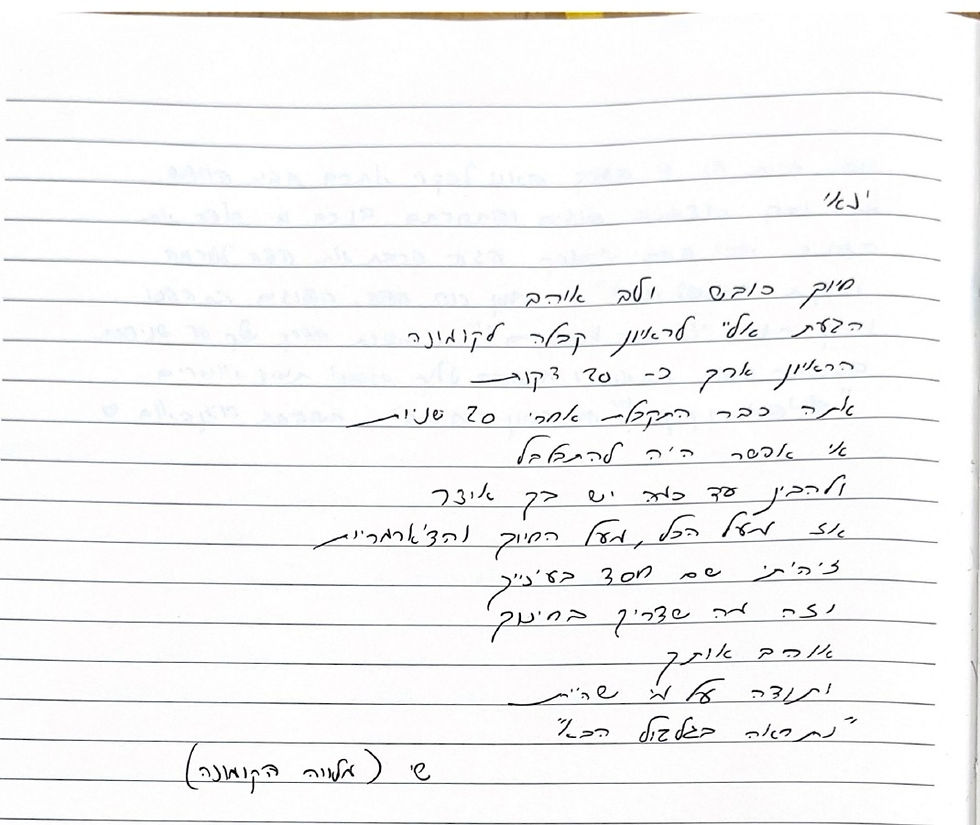 ינאי
חיוך כובש ולב אוהב
הגעת אליי לראיון קבלה לקומונה
הראיון ארך כ- 20 דקות
אתה כבר התקבלת אחרי 20 שניות
אי אפשר היה להתבלבל
ולהבין עד כמה יש בך אוצר
אז מעל הכל, מעל החיוך והצ'ארמריות
זיהיתי שם חסד בעיניך
וזה מה שצריך בחינוך
אוהב אותך
ותודה על מי שהיית
"נתראה בגלגול הבא"
שי (מלווה הקומונה)